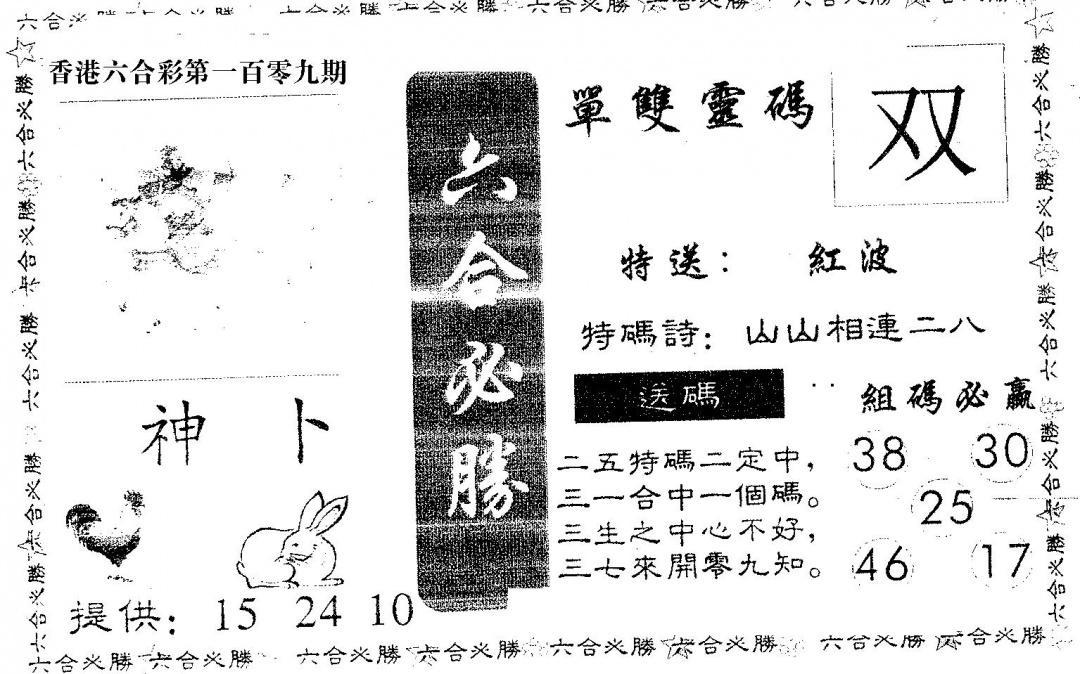 六合必勝 六合必勝 六合必勝 六合必勝 六合必勝 六合必勝 六合必勝 六合必勝
香港六合彩第一百零九期
神卜
提供：15 24 10
六合必勝
單雙靈碼
双
特送：紅波
特碼詩：山山相連二八
送碼
二五特碼二定中，
三一合中一個碼。
三生之中心不好，
三七來開零九知。
組碼必贏
38 30
25
46 17
六合必勝 六合必勝 六合必勝 六合必勝 六合必勝 六合必勝 六合必勝 六合必勝
六合必勝 六合必勝 六合必勝 六合必勝 六合必勝
六合必勝 六合必勝 六合必勝 六合必勝 六合必勝